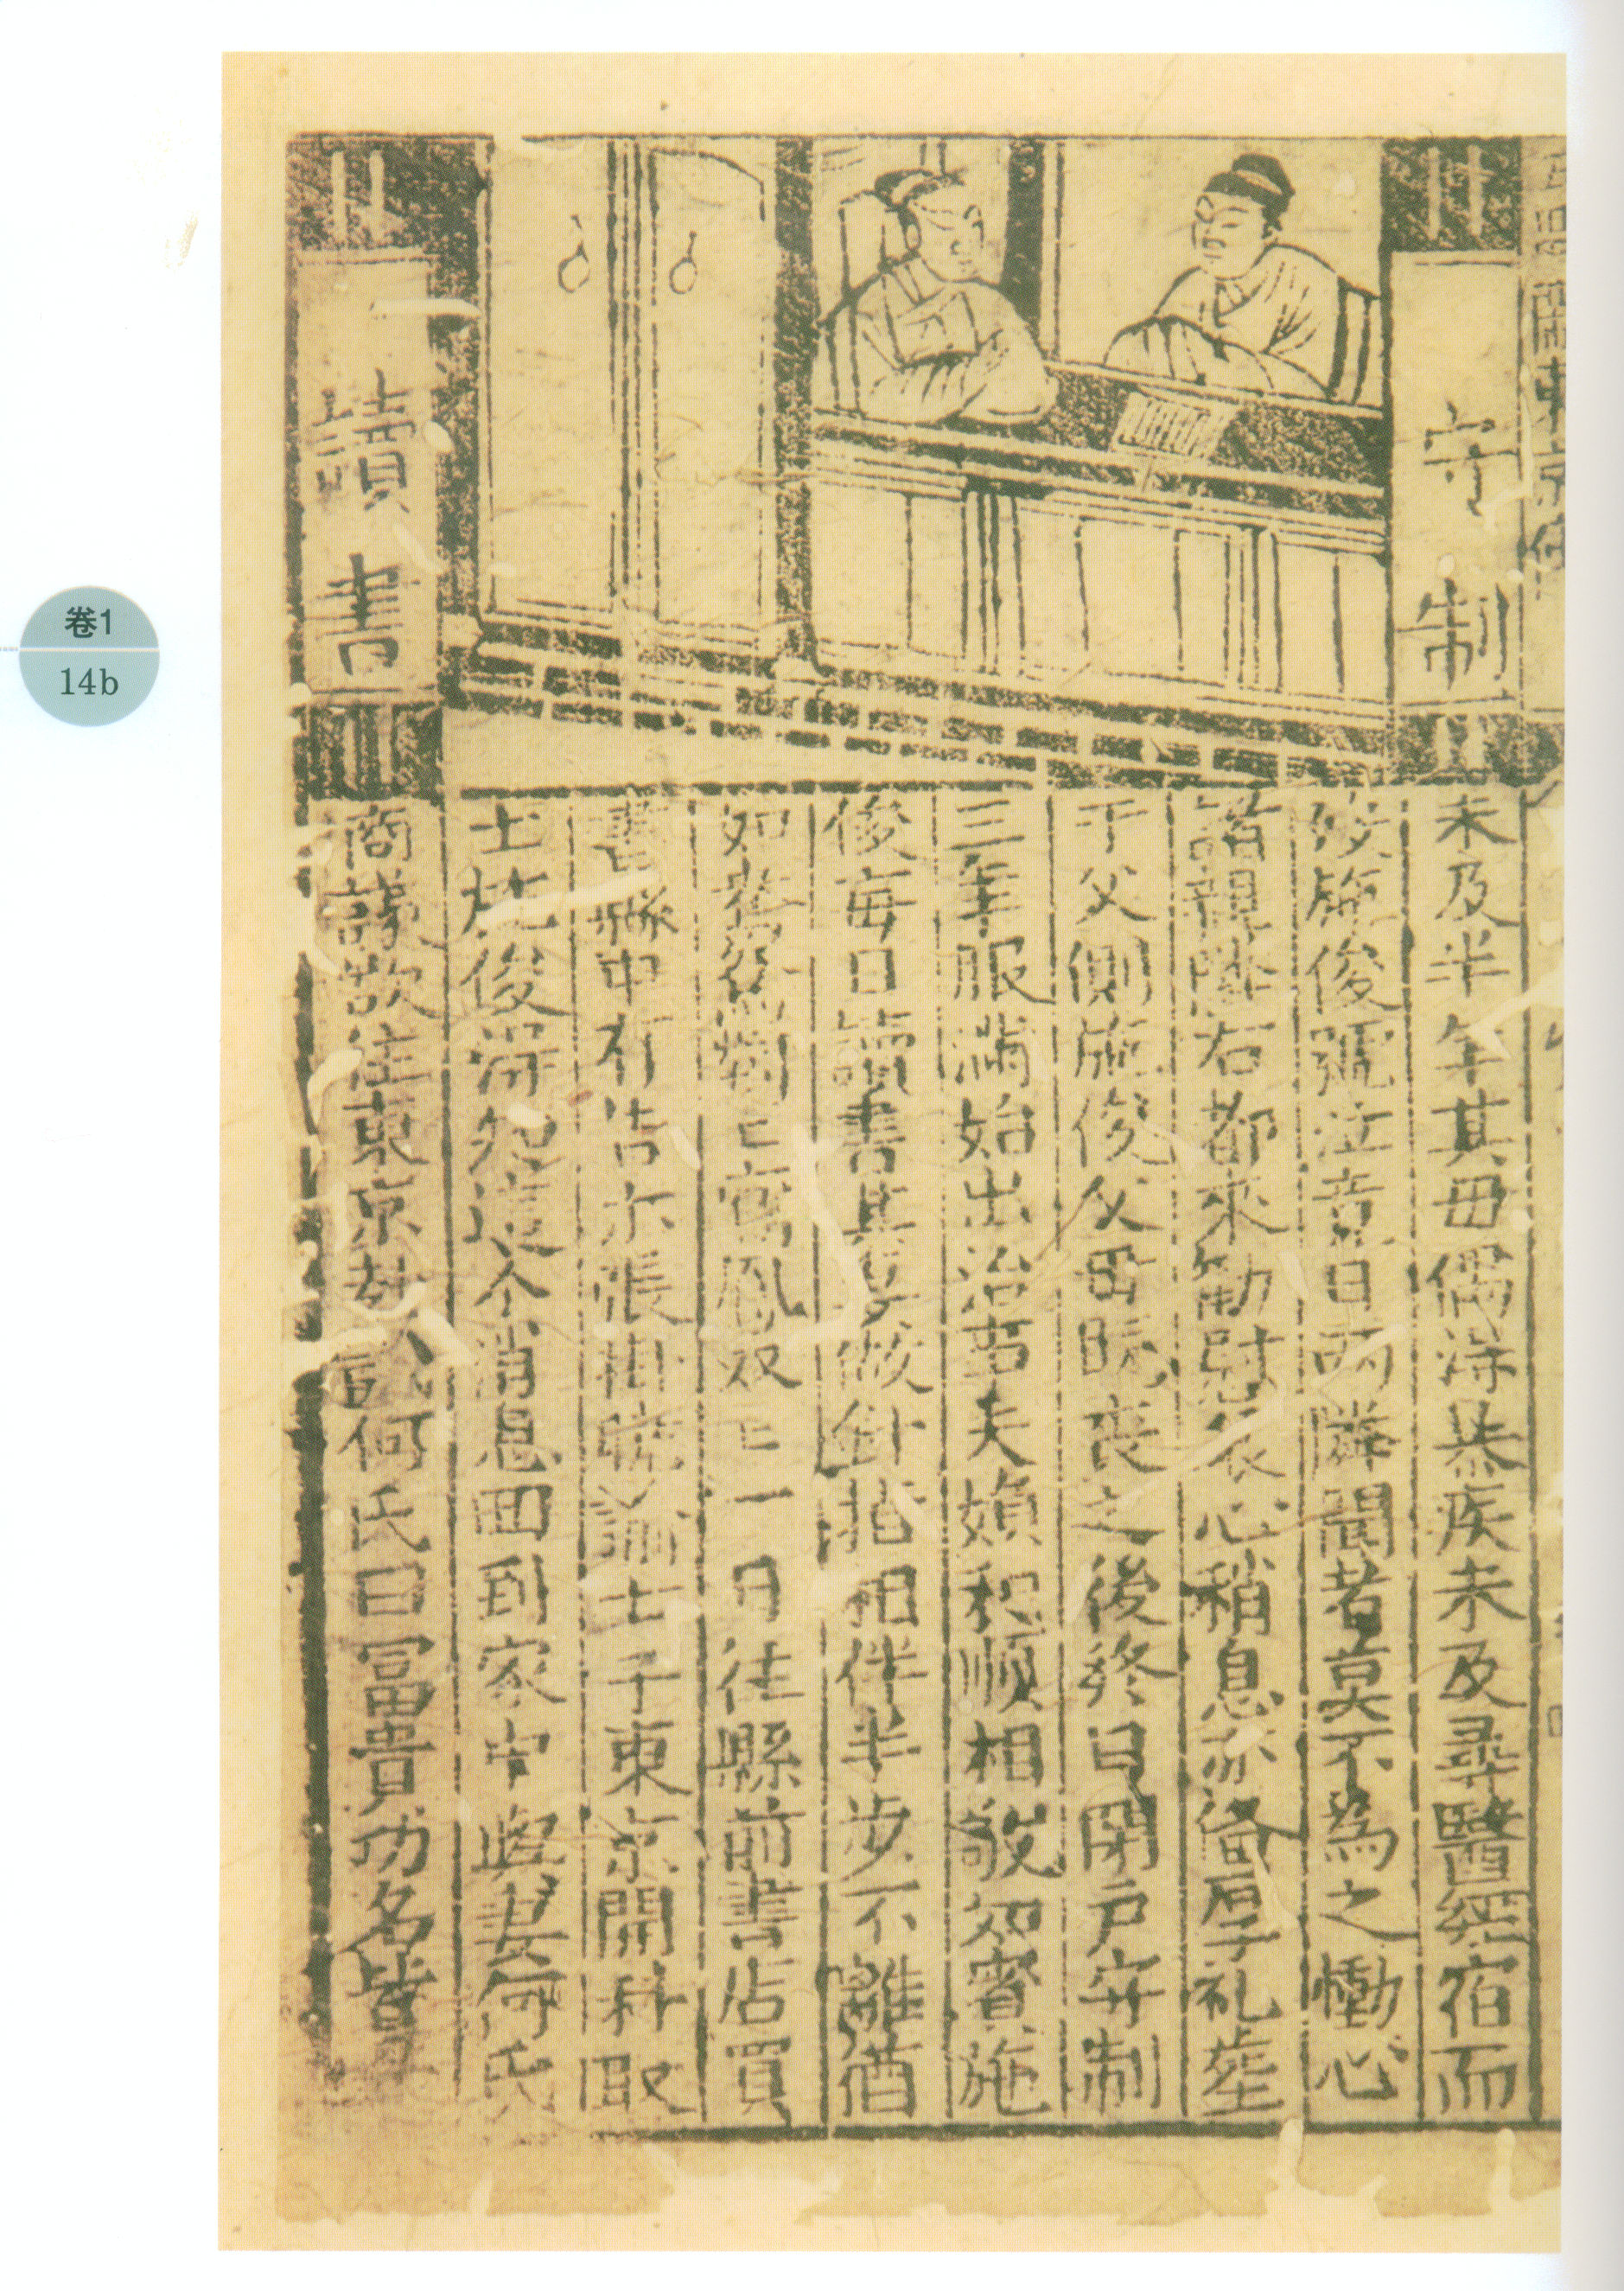 卷1
14b
守制
讀書
未及半年其毋偶淂暴疾未及尋醫經宿而
歿施俊號泣竟日兩隣聞者莫不為之慟心
右都來勸尉哀心稍息亦俻厚礼塟
于父側施俊父母
喪之後終日閉戸守制
三年服滿始出治
夫婦和順相敬如賔施
俊每日讀書其妻做針指相伴半步不離酋
如
鳳双〻一日往縣前書店買
書縣中有告示張掛曉諭士子東京開科取
士施俊淂知這个消息囬到家中與妻何氏
商議欲往東京赴
何氏曰冨貴功名皆